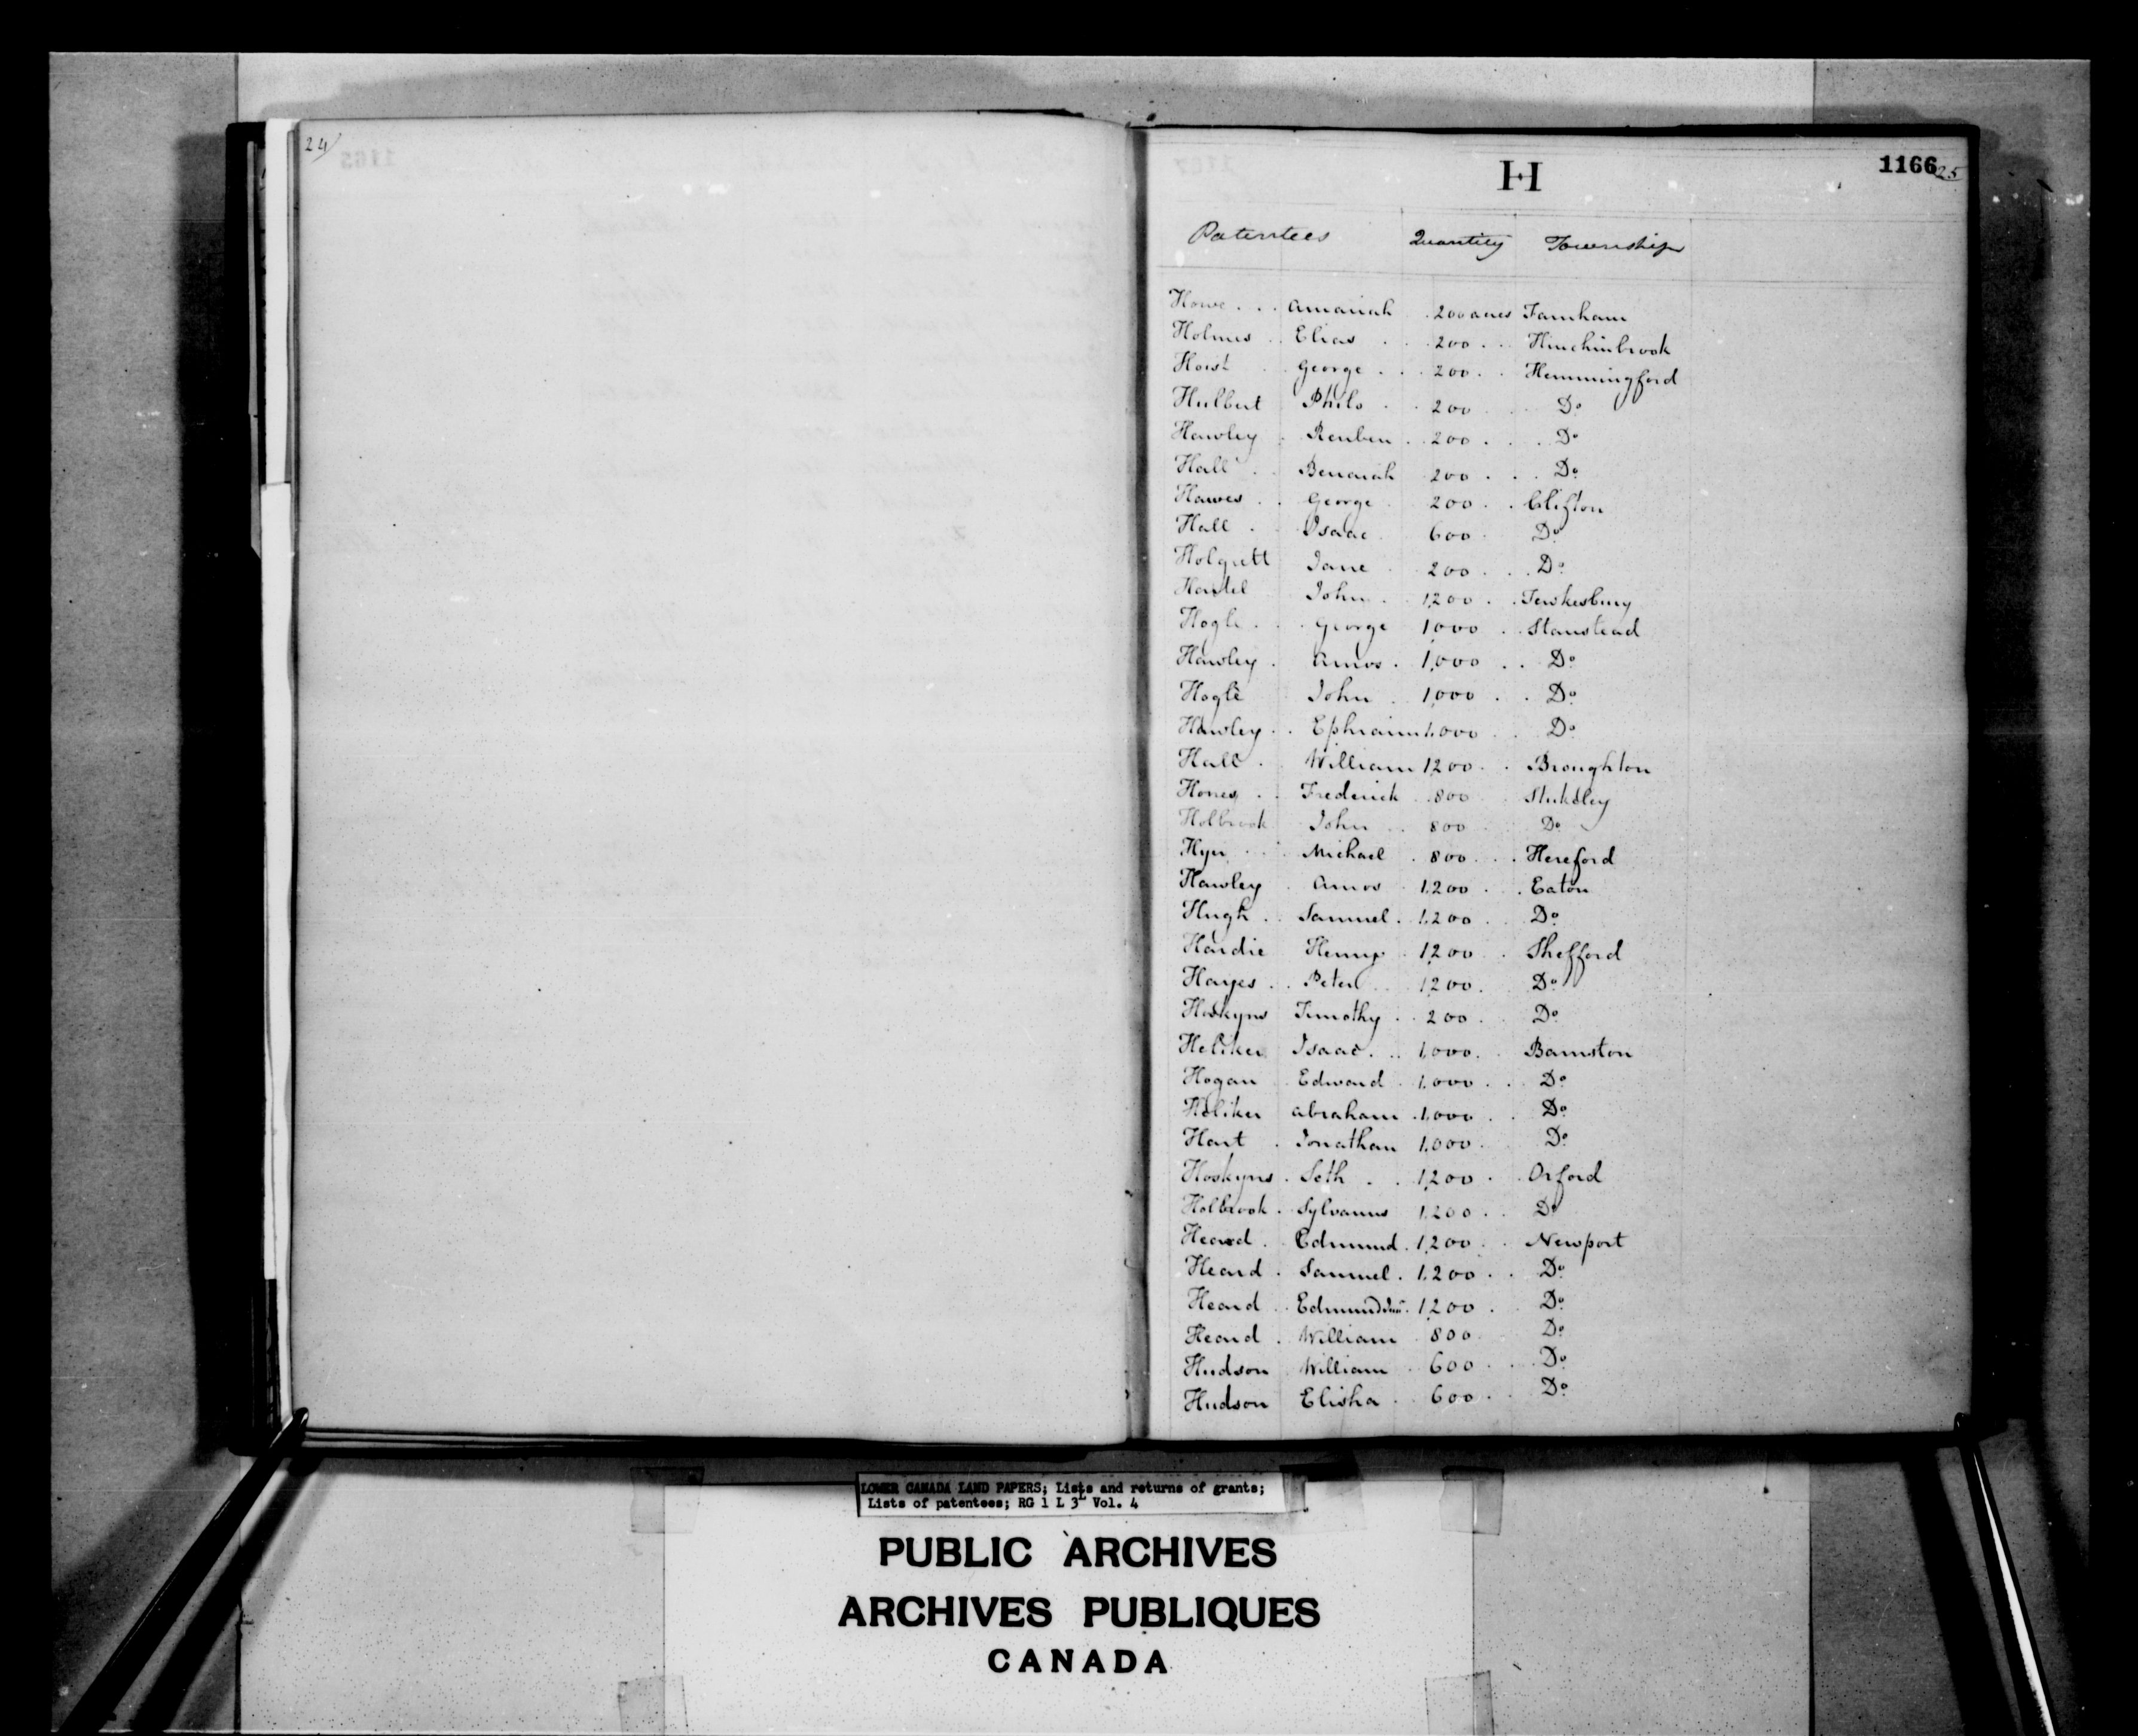 24
H
1166 25
Patentees Quantity Township
Howe . . . Amariah . 200 acres Farnham
Holmes . . Elias . . . 200 . . . Hinchinbrook
Hoist . George . . . 200 . . Hemmingford
Hulbert Philo . . 200 Do
Hawley . Reuben . 200 . . . Do
Hall . . Benaiah 200 . . . Do
Hawes . . George 200 . . Clifton
Hall . Isaac 600 . Do
Holgrett Jane . 200 . . . Do
Hartel John . . 1,200 . . Tewkesbury
Hogle . . . George 1,000 . . Stanstead
Hawley . Amos . 1,000 . . Do
Hogle John . 1,000 . . Do
Hawley . . Ephraim 1,000 . . Do
Hall . William 1,200 . . Broughton
Hones . . Frederick . 800 Stukeley
Holbrook John . . 800 Do
Hyer . . . Michael . 800 . . . Hereford
Hawley . Amos . 1,200 . . Eaton
Hugh . . Samuel . 1,200 . . Do
Hardie Henry . 1,200 . . Shefford
Hayes . . Peter . . 1,200 . Do
Hoskyns Timothy . . 200 . . Do
Heliker Isaac . . . 1,000 . . Barnston
Hogan . Edward . 1,000 . . . Do
Heliker Abraham . 1,000 . . Do
Hart . Jonathan 1,000 . Do
Hoskyns . Seth . . 1,200 . . Orford
Holbrook . Sylvanus 1,200 . . Do
Heard . Edmund . 1,200 . . Newport
Heard . Samuel . 1,200 . . . Do
Heard . . Edmund Junr . 1,200 . . Do
Heard . William . 800 . Do
Hudson William . 600 . . . Do
Hudson Elisha . . 600 . . Do
LOWER CANADA LAND PAPERS; Lists and returns of grants;
Lists of patentees; RG 1 L 3L Vol. 4
PUBLIC ARCHIVES
ARCHIVES PUBLIQUES
CANADA